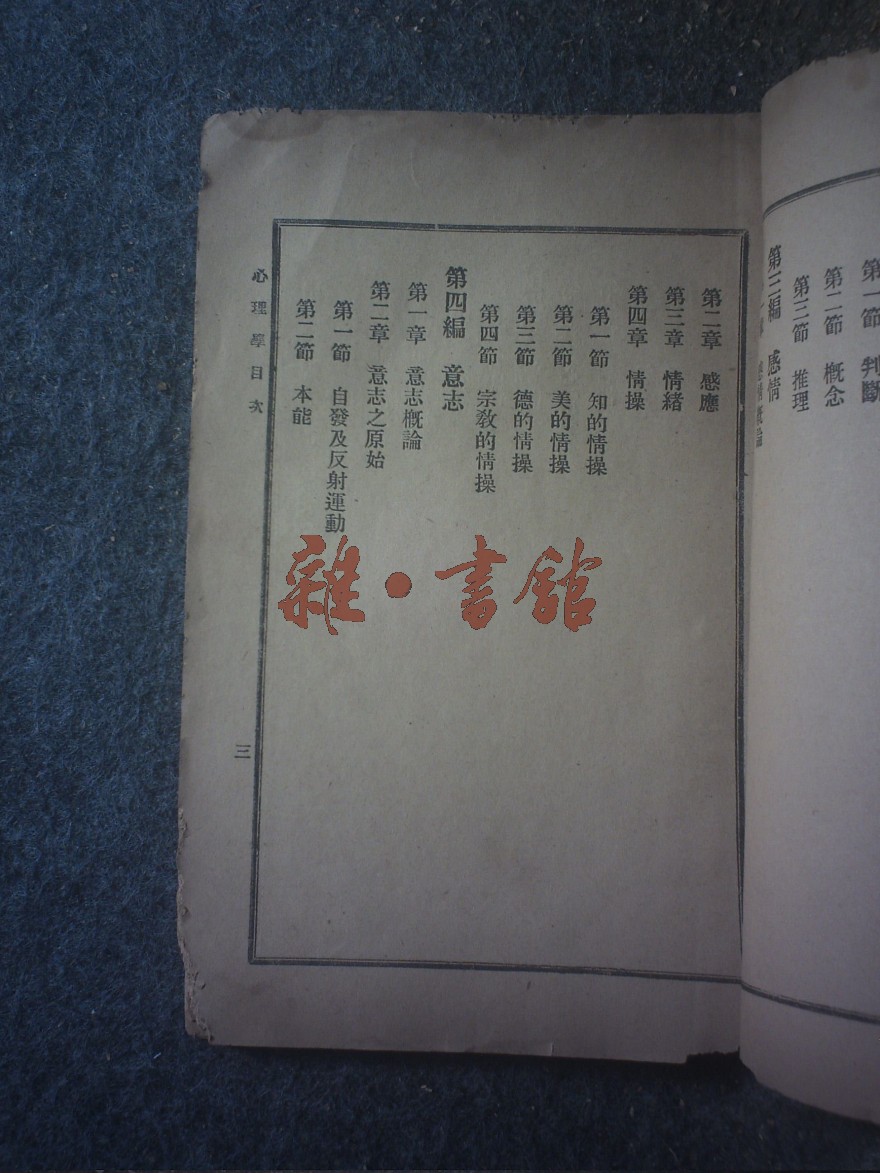 第一節 判斷
第二節 概念
第三節 推理
第三編 感情
第二章 感應
第三章 情緒
第四章 情操
第一節 知的情操
第二節 美的情操
第三節 德的情操
第四節 宗教的情操
第四編 意志
第一章 意志概論
第二章 意志之原始
第一節 自發及反射運動
第二節 本能
心理學目次
三
雜·書館